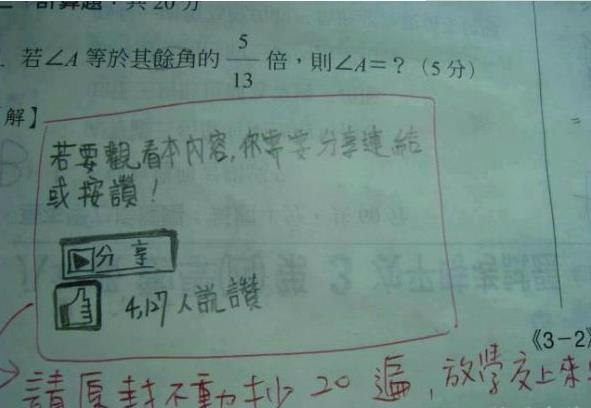 計算題：共20分
. 若∠A等於其餘角的 5/13 倍，則∠A=？（5分）
解】
若要觀看本內容，你需要分享連結
或按讚！
▶分享
4,127人說讚
《3-2》
請原封不動抄20遍，放學交上來